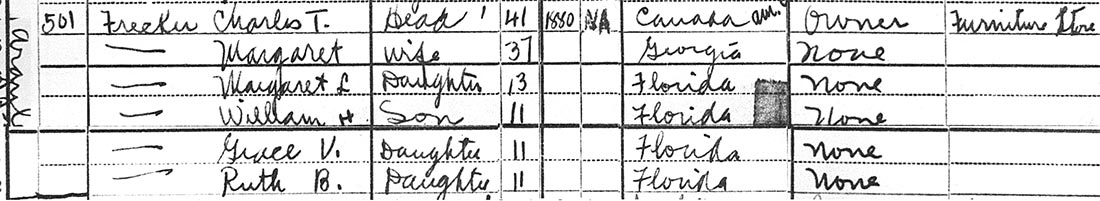 501 Freeker Charles T. Head 1 41 1880 NA Canada Owner Furniture Store
— Margaret Wife 37 Georgia None
— Margaret L Daughter 13 Florida None
— William H Son 11 Florida None
— Grace V. Daughter 11 Florida None
— Ruth B. Daughter 11 Florida None